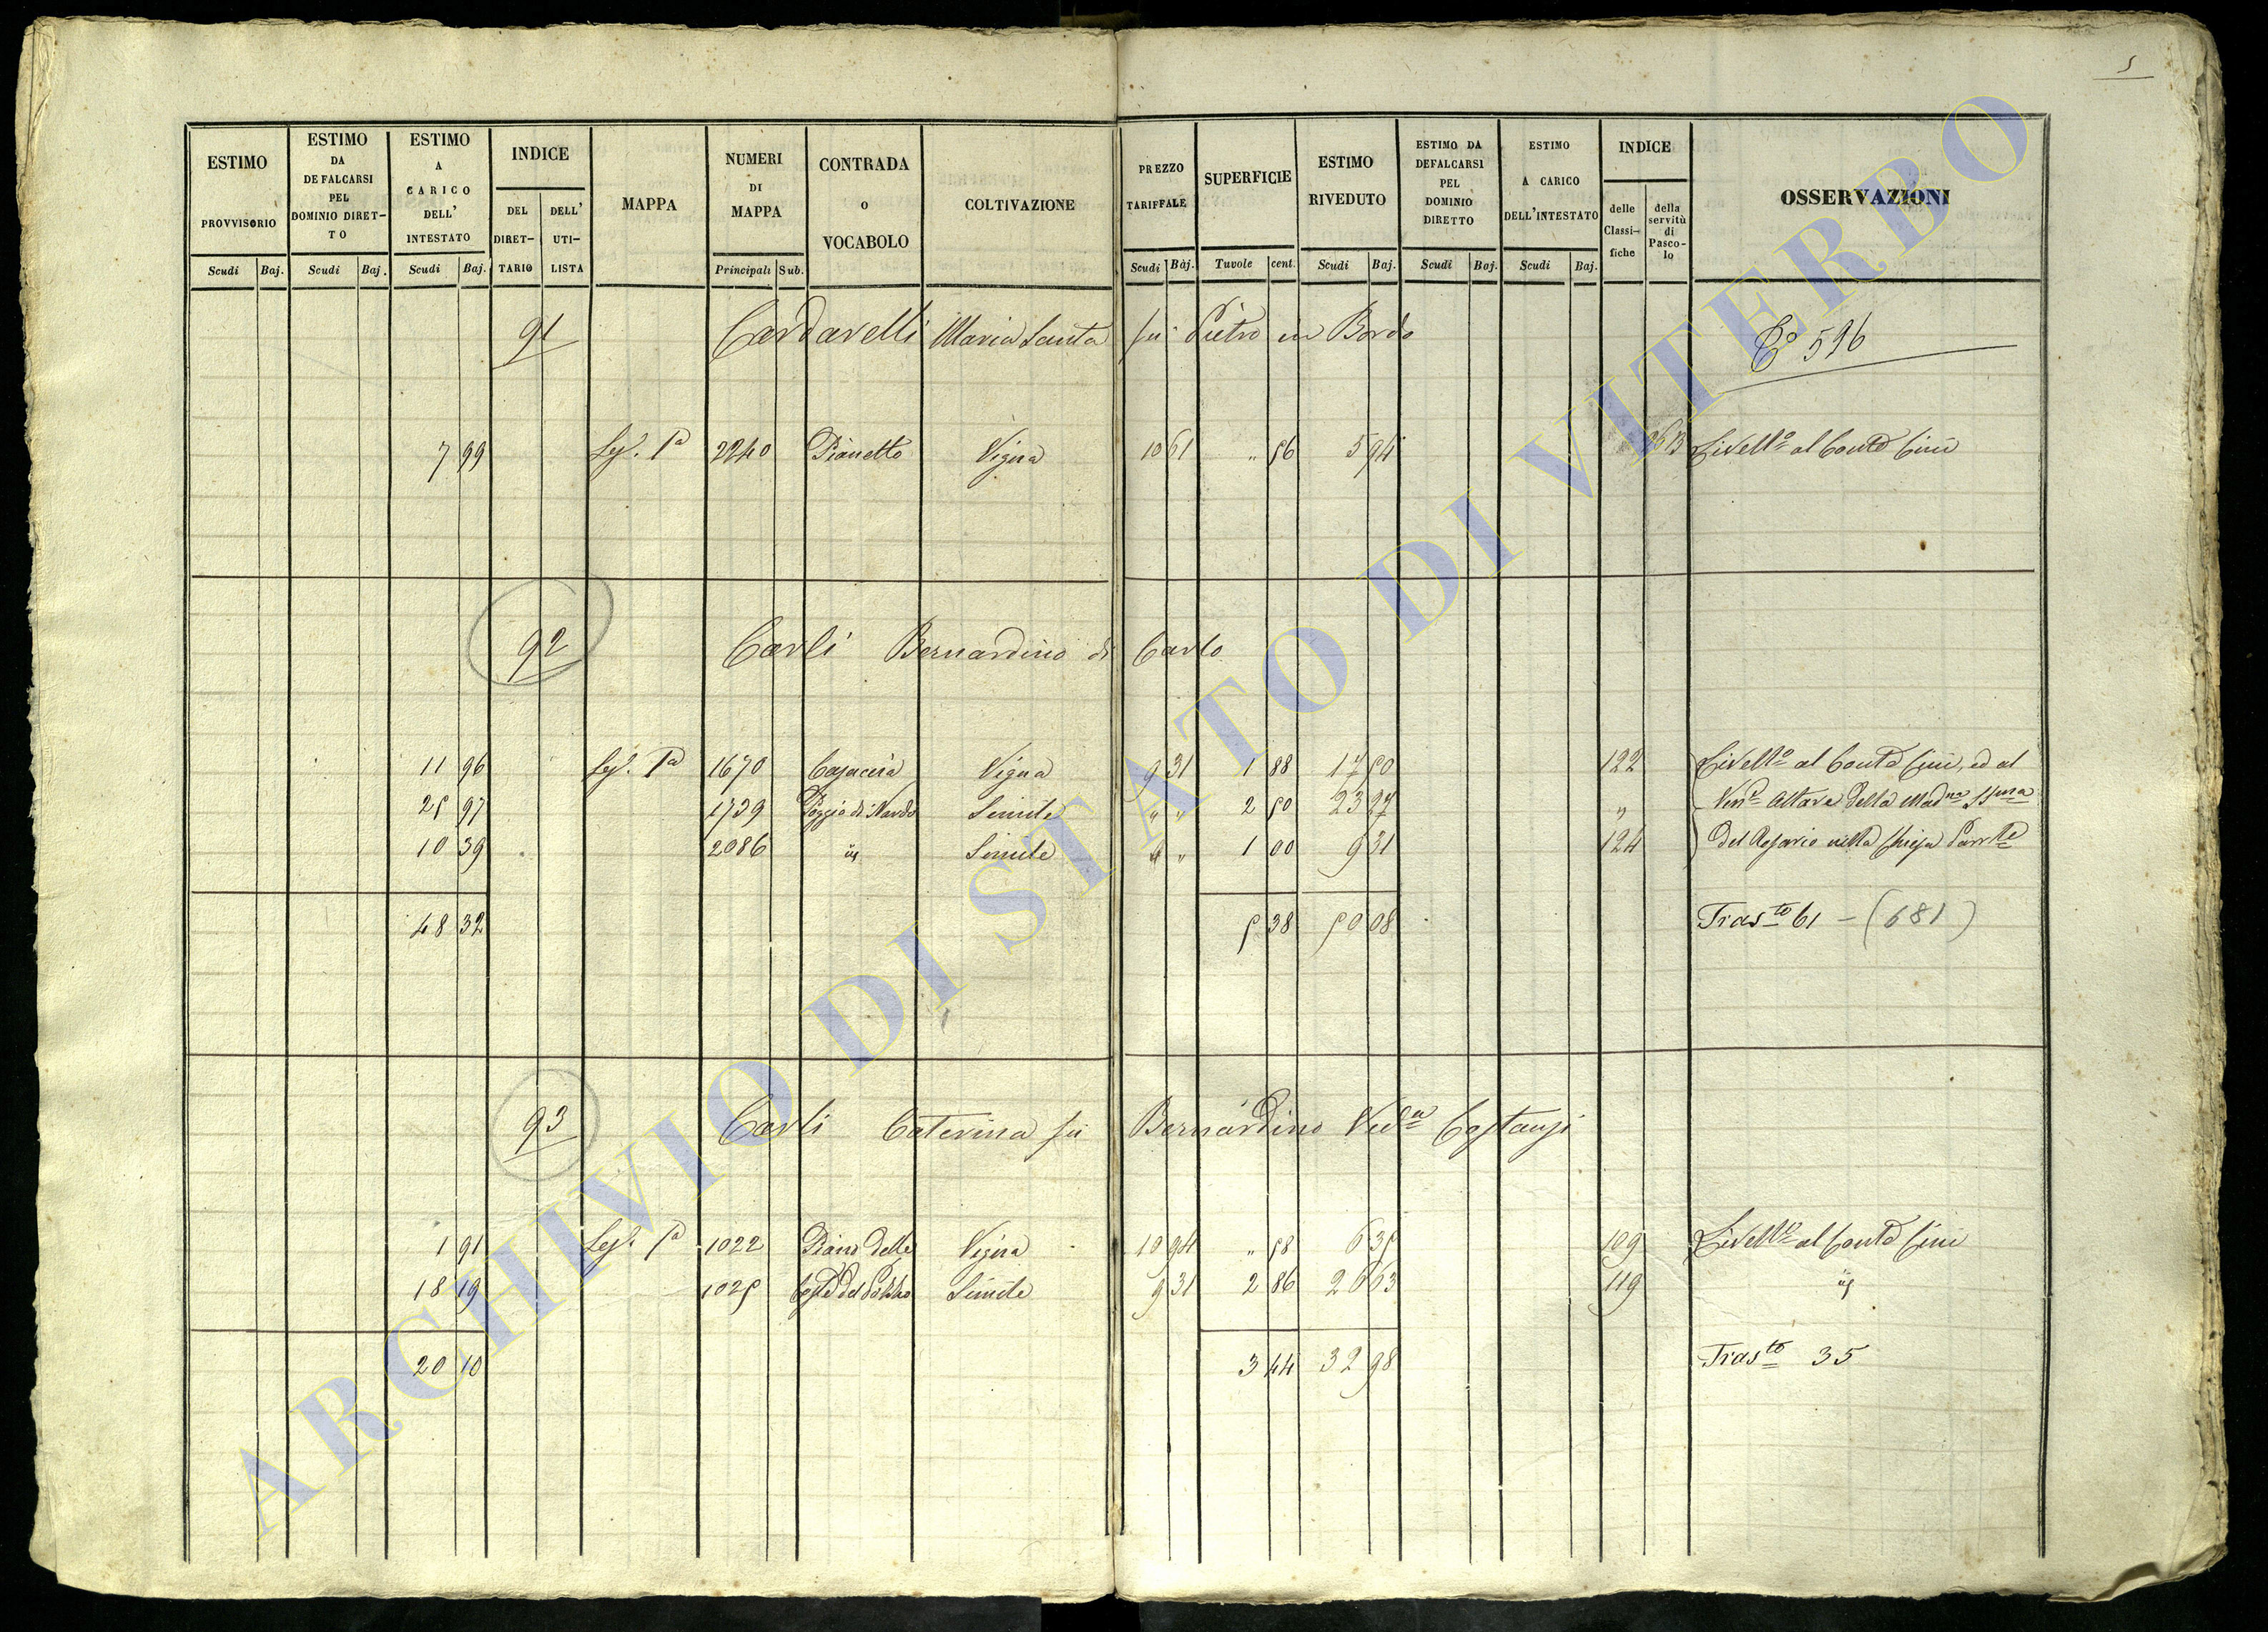 5
ESTIMO PROVVISORIO
ESTIMO DA DEFALCARSI PEL DOMINIO DIRET-TO
ESTIMO A CARICO DELL' INTESTATO
INDICE
DEL DIRET-TARIO
DELL' UTI-LISTA
MAPPA
NUMERI DI MAPPA
CONTRADA O VOCABOLO
COLTIVAZIONE
PREZZO TARIFFALE
SUPERFICIE
ESTIMO RIVEDUTO
ESTIMO DA DEFALCARSI PEL DOMINIO DIRETTO
ESTIMO A CARICO DELL'INTESTATO
INDICE
delle Classi-fiche
della servitù di Pasco-lo
OSSERVAZIONI
Scudi Baj. Scudi Baj. Scudi Baj. Principali Sub. Scudi Baj. Tavole cent. Scudi Baj. Scudi Baj. Scudi Baj.
91 Cardarelli Maria Santa fu Pietro in Bordo Co 596
7 99 Sez. Pa 2240 Pianetto Vigna 10 61 " 56 5 94 Livello al Conte Cini
92 Carli Bernardino di Carlo
11 96 Sez. Pa 1670 Vigna 9 31 1 88 17 50 122 Livello al Conte Cini, ed al
25 97 1739 Poggio di Nardo Simile " " 2 50 23 27 " Vene Altare della Madna SSma
10 39 2086 Simile " " 1 00 9 31 124 del Rosario nella Chiesa Parrle
48 32 5 38 50 08 Trasto 61 - (681)
93 Carli Caterina fu Bernardino Veda Costanzi
1 91 Sez. Pa 1022 Piano delle Vigna 10 94 " 58 6 35 109 Livello al Conte Cini
18 19 1025 Simile 9 31 2 86 26 63 119
20 10 3 44 32 98 Trasto 35
ARCHIVIO DI STATO DI VITERBO